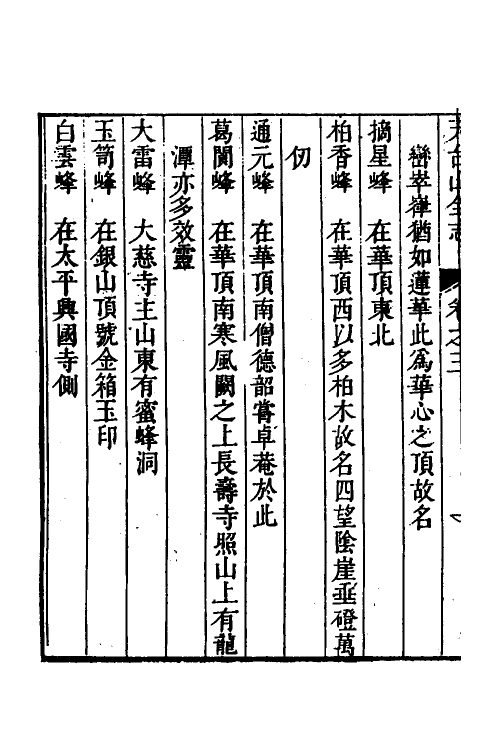 天台山全志 卷之三
巒崒嵂猶如蓮華此爲華心之頂故名
摘星峰 在華頂東北
柏香峰 在華頂西以多柏木故名四望陰崖垂磴萬
仞
通元峰 在華頂南僧德韶嘗卓菴於此
葛閬峰 在華頂南寒風闕之上長壽寺照山上有龍
潭亦多效靈
大雷峰 大慈寺主山東有蜜蜂洞
玉笥峰 在銀山頂號金箱玉印
白雲峰 在太平興國寺側